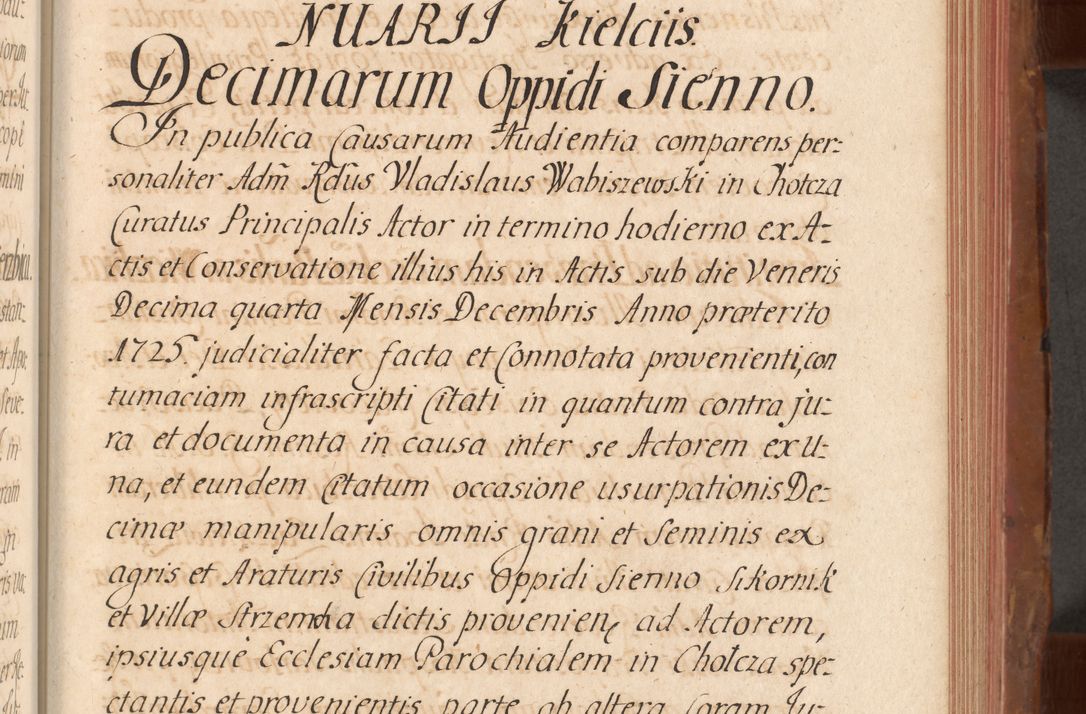 NUARII Kielciis.
Decimarum Oppidi Sienno.
In publica Causarum Audientia comparens per:
sonaliter Adm̃ Rdus Vladislaus Wabiszewski in Chotcza
Curatus Principalis Actor in termino hodierno ex A:
ctis et Conservatione illius his in Actis sub die Veneris
Decima quarta Mensis Decembris Anno præterito
1725. judicialiter facta et Connotata provenienti, con
tumaciam infrascripti Citati in quantum contra ju:
ra et documenta in causa inter se Actorem ex u:
na, et eundem Citatum occasione usurpationis De:
cimæ manipularis omnis grani et Seminis ex
agris et Araturis Civilibus Oppidi Sienno Sikornik
et Villæ Strzemcha dictis provenien, ad Actorem,
ipsiusque Ecclesiam Parochialem in Chotcza spe:
ctantis et provenientis parte ab altera Coram Ju: